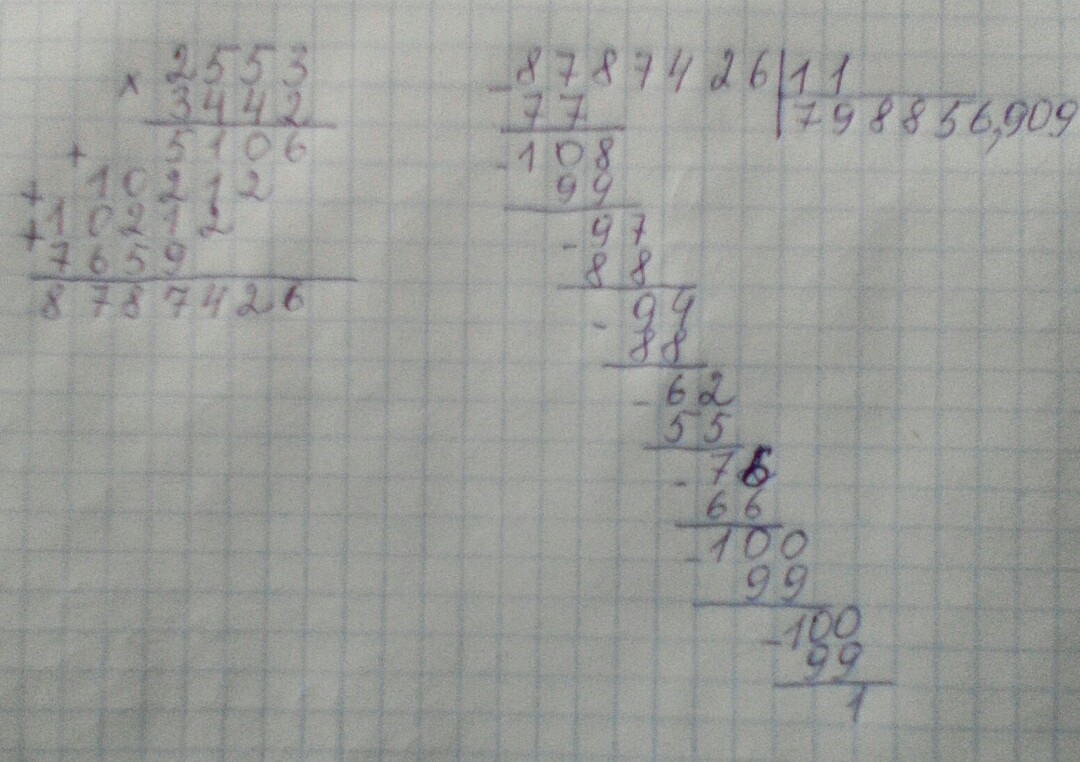 × 2553
3442
+ 5106
+ 10212
+ 10212
7659
8787426
- 8787426 | 11
77 | 798856,909
- 108
99
- 97
88
- 99
88
- 62
55
- 76
66
- 100
99
- 100
99
1